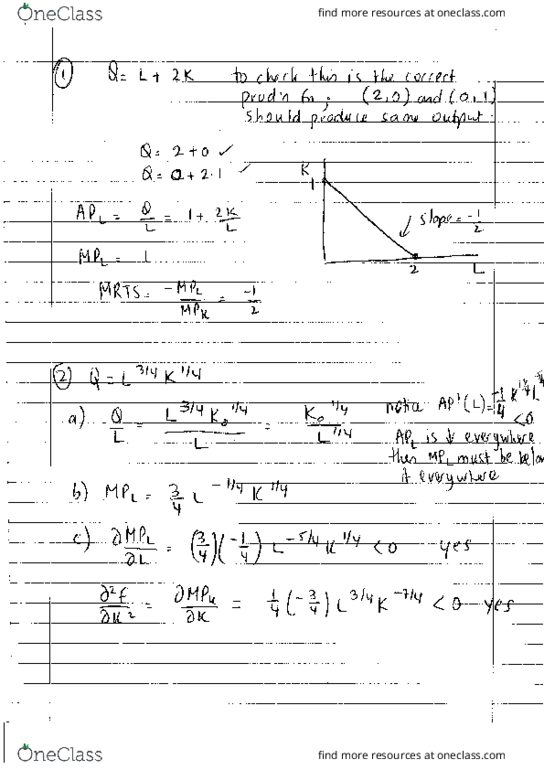 OneClass
find more resources at oneclass.com
① Q = L + 2K to check this is the correct
prod'n fn ; (2,0) and (0,1)
should produce same output
Q = 2 + 0 ✓
Q = 0 + 2·1 ✓
K
1
slope = -1/2
2 L
AP_L = Q/L = 1 + 2K/L
MP_L = 1
MRTS = -MP_L/MP_K = -1/2
② Q = L^3/4 K^1/4
a) Q/L = L^3/4 K_0^1/4 / L = K_0^1/4 / L^1/4
notice AP'(L) = -1/4 K^1/4 L
< 0
AP_L is ↓ everywhere
then MP_L must be below
it everywhere
b) MP_L = 3/4 L^-1/4 K^1/4
c) ∂MP_L/∂L = (3/4)(-1/4) L^-5/4 K^1/4 < 0 yes
∂²f/∂K² = ∂MP_K/∂K = 1/4 (-3/4) L^3/4 K^-7/4 < 0 yes
OneClass
find more resources at oneclass.com